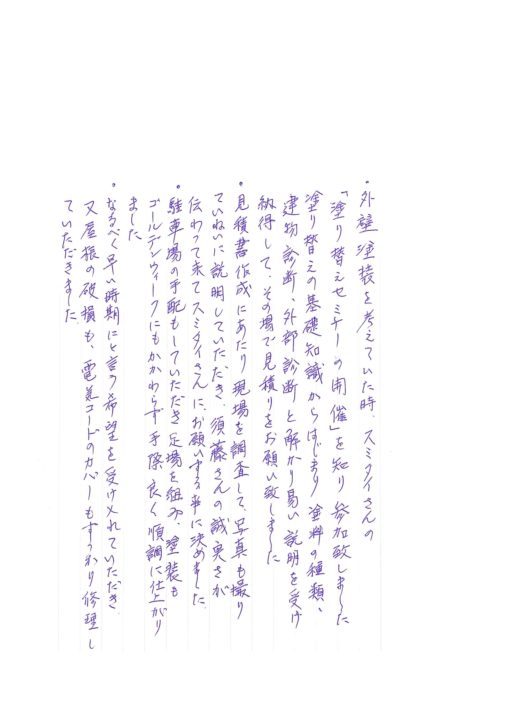 ・外壁塗装を考えていた時、スミタイさんの
「塗り替えセミナーの開催」を知り参加致しました
塗り替えの基礎知識からはじまり塗料の種類、
建物診断、外部診断と解かり易い説明を受け
納得して、その場で見積りをお願い致しました
・見積書作成にあたり現場を調査して、写真も撮り
ていねいに説明していただき、須藤さんの誠実さが
伝わって来てスミタイさんに、お願いする事に決めました。
・駐車場の手配もしていただき足場を組み、塗装も
ゴールデンウィークにもかかわらず手際良く順調に仕上がり
ました
・なるべく早い時期にと言う希望を受け入れていただき
又屋根の破損も、電気コードのカバーもすっかり修理し
ていただきました。